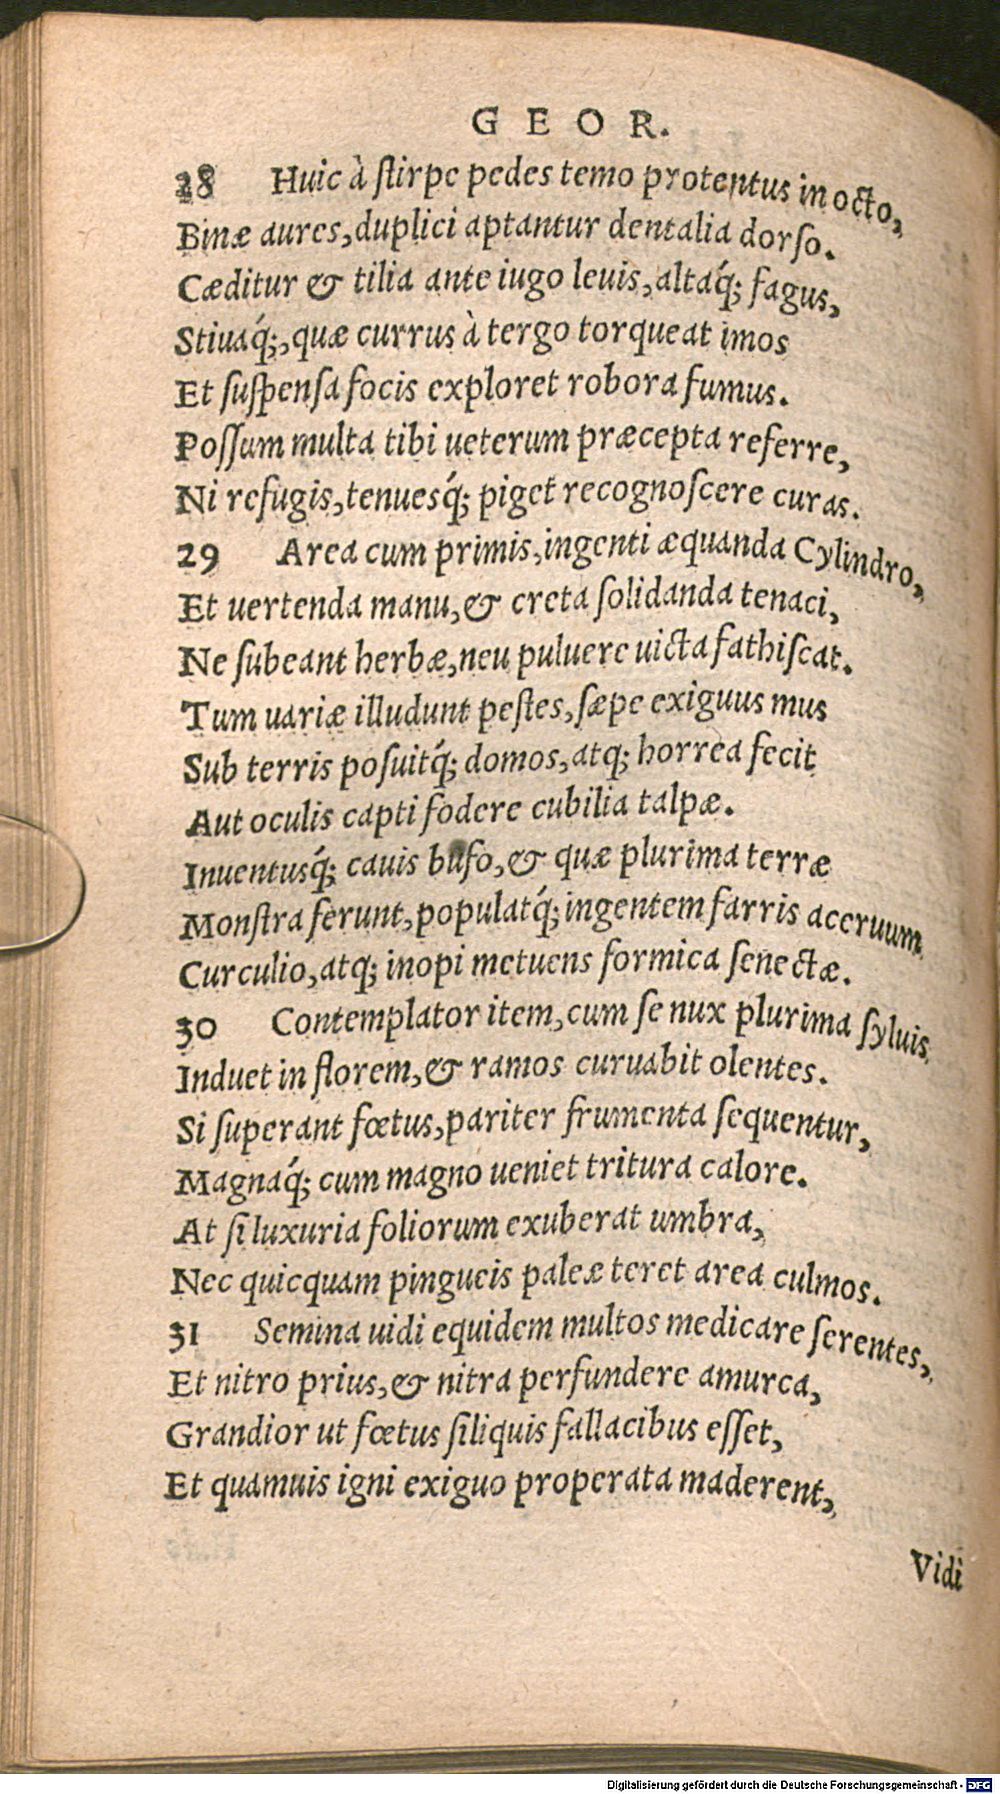 GEOR.
28 Huic à ſtirpe pedes temo protentus in octo,
Binæ aures, duplici aptantur dentalia dorſo.
Cæditur & tilia ante iugo leuis, altaq́; fagus,
Stiuaq́;, quæ currus à tergo torqueat imos
Et ſuſpenſa focis exploret robora fumus.
Poſſum multa tibi ueterum præcepta referre,
Ni refugis, tenuesq́; piget recognoſcere curas.
29 Area cum primis, ingenti æquanda Cylindro,
Et uertenda manu, & creta ſolidanda tenaci,
Ne ſubeant herbæ, neu puluere uicta fathiſcat.
Tum uariæ illudunt peſtes, ſæpe exiguus mus
Sub terris poſuitq́; domos, atq; horrea fecit
Aut oculis capti fodere cubilia talpæ.
Inuentusq́; cauis bufo, & quæ plurima terræ
Monſtra ferunt, populatq́; ingentem farris aceruum
Curculio, atq; inopi metuens formica ſenectæ.
30 Contemplator item, cum ſe nux plurima ſyluis
Induet in florem, & ramos curuabit olentes.
Si ſuperant fœtus, pariter frumenta ſequentur,
Magnaq́; cum magno ueniet tritura calore.
At ſi luxuria foliorum exuberat umbra,
Nec quicquam pingueis paleæ teret area culmos.
31 Semina uidi equidem multos medicare ſerentes,
Et nitro prius, & nitra perfundere amurca,
Grandior ut fœtus ſiliquis fallacibus eſſet,
Et quamuis igni exiguo properata maderent,
Vidi
Digitalisierung gefördert durch die Deutsche Forschungsgemeinschaft - DFG